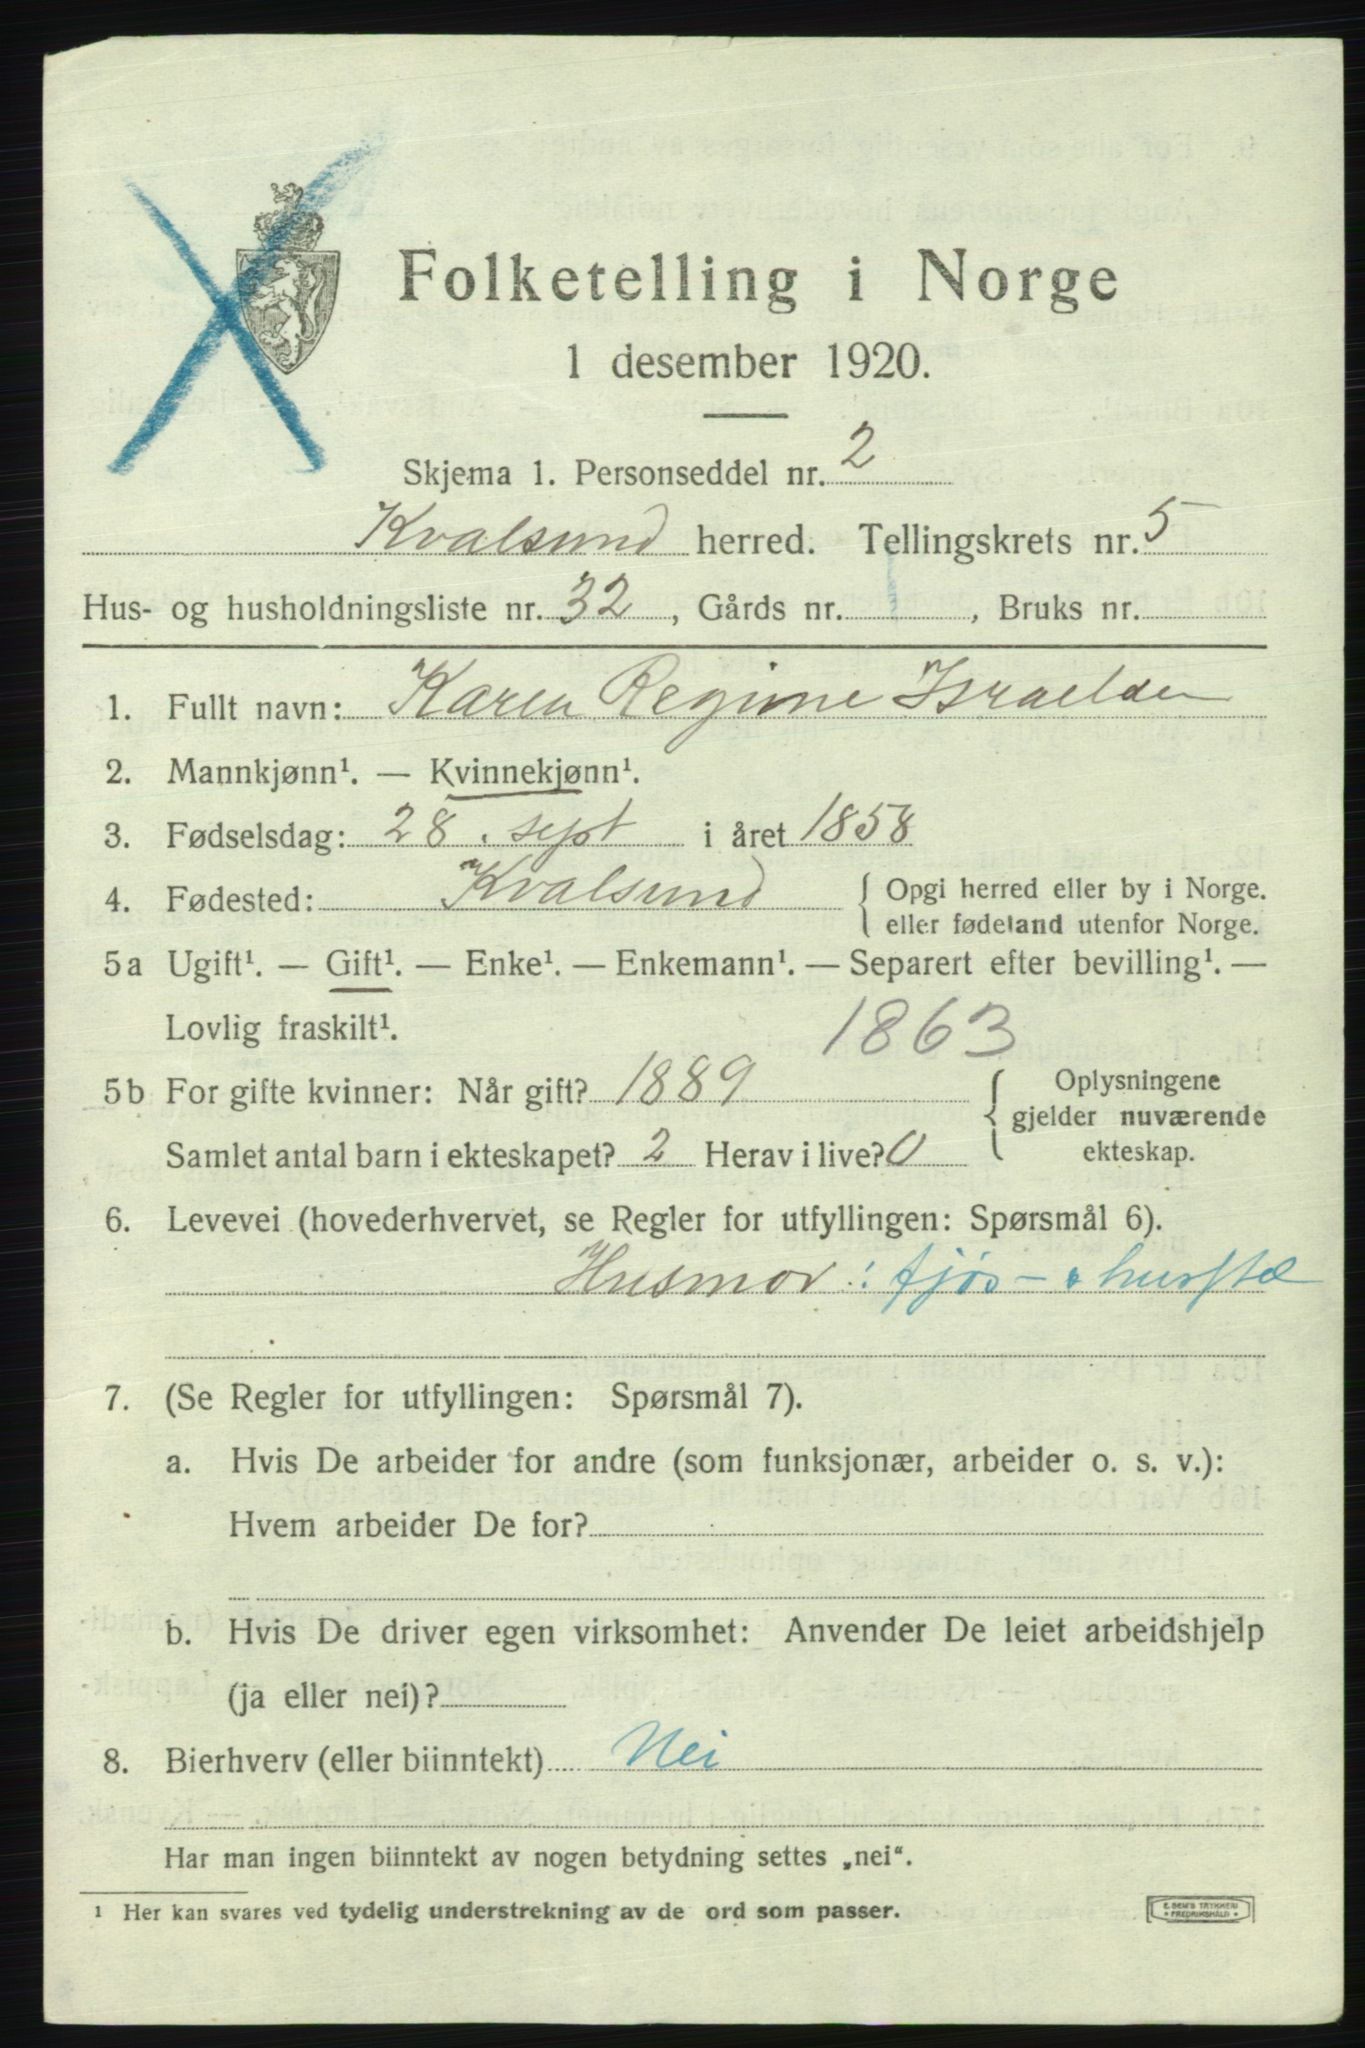 Folketelling i Norge
1 desember 1920.
Skjema 1. Personseddel nr. 2
Kvalsund herred. Tellingskrets nr. 5
Hus- og husholdningsliste nr. 32, Gårds nr. 1, Bruks nr.
1. Fullt navn: Karen Regine Israelsen
2. Mannkjønn¹. — Kvinnekjønn¹.
3. Fødselsdag: 28. sept i året 1858
4. Fødested: Kvalsund { Opgi herred eller by i Norge.
eller fødeland utenfor Norge.
5a Ugift¹. — Gift¹. — Enke¹. — Enkemann¹. — Separert efter bevilling¹. —
Lovlig fraskilt¹. 1863
5b For gifte kvinner: Når gift? 1889 { Oplysningene
gjelder nuværende
Samlet antal barn i ekteskapet? 2 Herav i live? 0 ekteskap.
6. Levevei (hovederhvervet, se Regler for utfyllingen: Spørsmål 6).
Husmor: fjøs-
7. (Se Regler for utfyllingen: Spørsmål 7).
a. Hvis De arbeider for andre (som funksjonær, arbeider o. s. v.):
Hvem arbeider De for?
b. Hvis De driver egen virksomhet: Anvender De leiet arbeidshjelp
(ja eller nei)?
8. Bierhverv (eller biinntekt) Nei
Har man ingen biinntekt av nogen betydning settes „nei“.
¹ Her kan svares ved tydelig understrekning av de ord som passer.
E. SEM'S TRYKKERI
* FREDRIKSHALD *